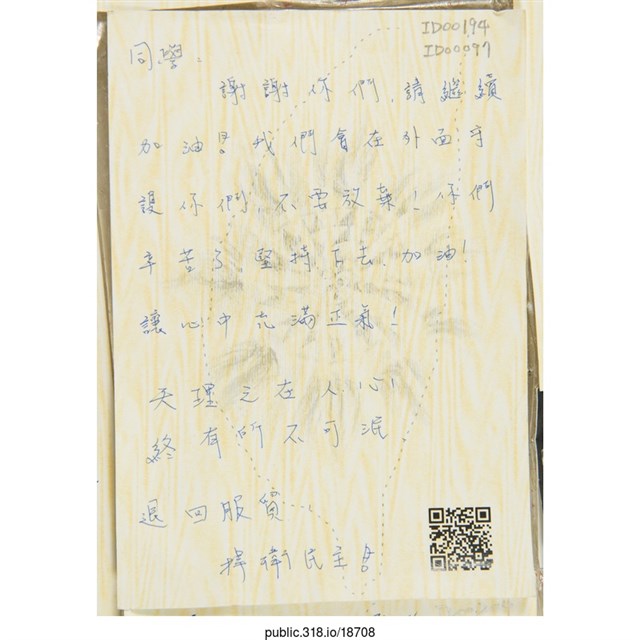 ID00194
ID00097
同學：
謝謝你們，請繼續
加油！我們會在外面守
護你們，不要放棄！你們
辛苦了 堅持下去，加油！
讓心中充滿正氣！
天理之在人心
終有所不可泯
退回服貿
捍衛民主！
public.318.io/18708